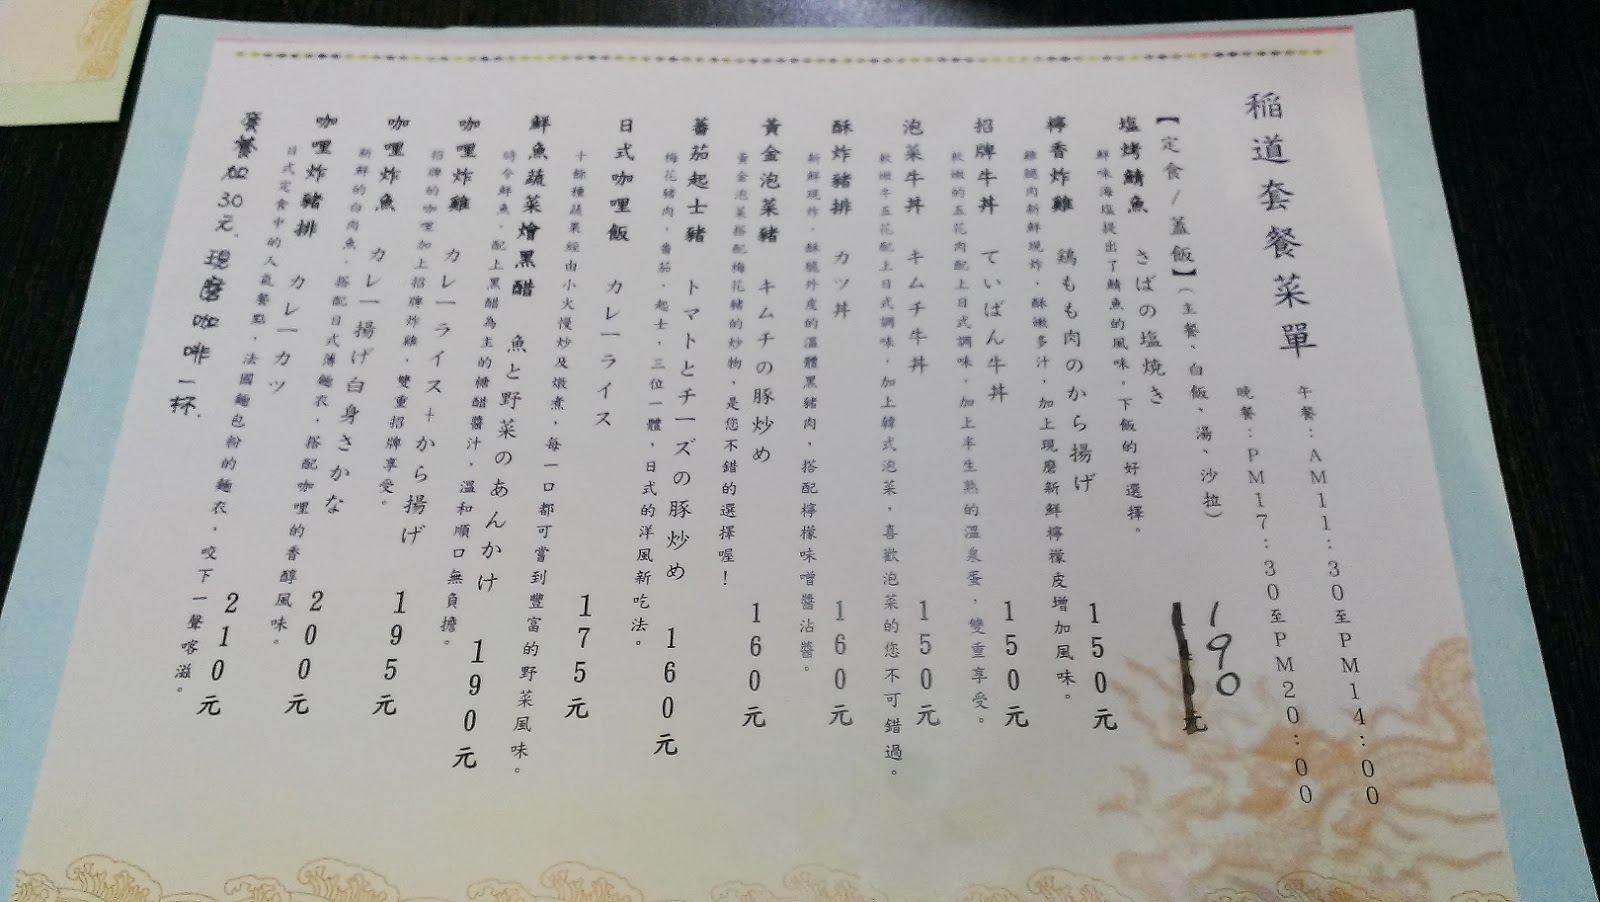 稻道套餐菜單
午餐：AM11：30至PM14：00
晚餐：PM17：30至PM20：00
【定食/蓋飯】（主餐、白飯、湯、沙拉）
塩烤鯖魚 さばの塩焼き 190
鮮味海塩提出了鯖魚的風味，下飯的好選擇。
檸香炸雞 鶏もも肉のから揚げ 150元
雞腿肉新鮮現炸，酥嫩多汁，加上現磨新鮮檸檬皮增加風味。
招牌牛丼 ていばん牛丼 150元
軟嫩的五花肉配上日式調味，加上半生熟的溫泉蛋，雙重享受。
泡菜牛丼 キムチ牛丼 150元
軟嫩牛五花配上日式調味，加上韓式泡菜，喜歡泡菜的您不可錯過。
酥炸豬排 カツ丼 160元
新鮮現炸，酥脆外皮的溫體黑豬肉，搭配檸檬味噌醬沾醬。
黃金泡菜豬 キムチの豚炒め 160元
黃金泡菜搭配梅花豬的炒物，是您不錯的選擇喔！
蕃茄起士豬 トマトとチーズの豚炒め 160元
梅花豬肉，番茄，起士，三位一體，日式的洋風新吃法。
日式咖哩飯 カレーライス 175元
十餘種蔬果經由小火慢炒及燉煮，每一口都可嘗到豐富的野菜風味。
鮮魚蔬菜燴黑醋 魚と野菜のあんかけ 190元
時令鮮魚，配上黑醋為主的糖醋醬汁，溫和順口無負擔。
咖哩炸雞 カレーライス+から揚げ 195元
招牌的咖哩加上招牌炸雞，雙重招牌享受。
咖哩炸魚 カレー揚げ白身さかな 200元
新鮮的白肉魚，搭配日式薄麵衣，搭配咖哩的香醇風味。
咖哩炸豬排 カレーカツ 210元
日式定食中的人氣餐點，法國麵包粉的麵衣，咬下一聲喀滋。
套餐加30元．現磨咖啡一杯．